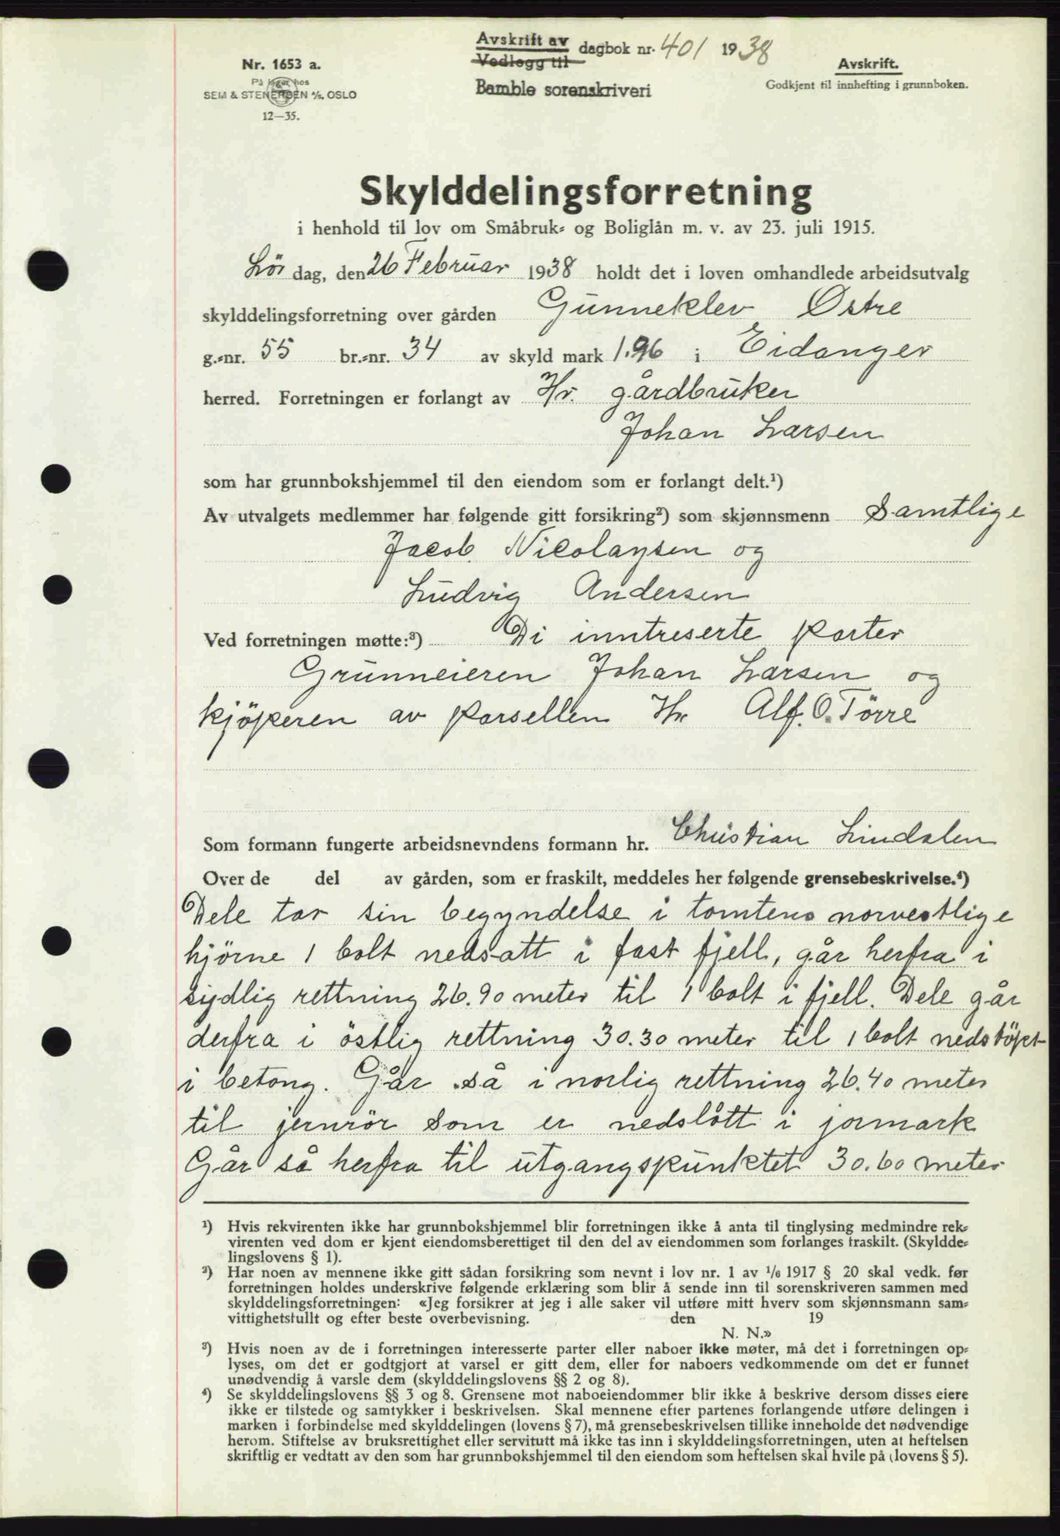 Avskrift av
Vedlegg til
dagbok nr. 401 1938
Bamble sorenskriveri
Nr. 1653 a.
På lager hos
SEM & STENERSEN A/S, OSLO
12—35.
Avskrift.
Godkjent til innhefting i grunnboken.
Skylddelingsforretning
i henhold til lov om Småbruk- og Boliglån m. v. av 23. juli 1915.
Lør dag, den 26 Februar 1938 holdt det i loven omhandlede arbeidsutvalg
skylddelingsforretning over gården Gunneklev Østre
g.-nr. 55 br.-nr. 34 av skyld mark 1.96 i Eidanger
herred. Forretningen er forlangt av Hr. gårdbruker
Johan Larsen
som har grunnbokshjemmel til den eiendom som er forlangt delt.¹)
Av utvalgets medlemmer har følgende gitt forsikring²) som skjønnsmenn Samtlige
Jacob Nicolaysen og
Ludvig Andersen
Ved forretningen møtte:³) Di inntreserte parter
Grunneieren Johan Larsen og
kjöperen av parsellen Hr Alf. O. Törre
Som formann fungerte arbeidsnevndens formann hr. Christian Lindalen
Over de del av gården, som er fraskilt, meddeles her følgende grensebeskrivelse.⁴)
Dele tar sin begyndelse i tomtens norvestlige
hjørne 1 bolt nedsatt i fast fjell, går herfra i
sydlig rettning 26.90 meter til 1 bolt i fjell. Dele går
derfra i östlig rettning 30.30 meter til 1 bolt nedstöpt
i betong. Går så i norlig rettning 26.40 meter
til jernrör som er nedslått i jormark
Går så herfra til utgangspunktet 30.60 meter
¹) Hvis rekvirenten ikke har grunnbokshjemmel blir forretningen ikke å anta til tinglysing medmindre rek-
virenten ved dom er kjent eiendomsberettiget til den del av eiendommen som forlanges fraskilt. (Skyldde-
lingslovens § 1).
²) Har noen av mennene ikke gitt sådan forsikring som nevnt i lov nr. 1 av 1/6 1917 § 20 skal vedk. før
forretningen holdes underskrive følgende erklæring som blir å sende inn til sorenskriveren sammen med
skylddelingsforretningen: «Jeg forsikrer at jeg i alle saker vil utføre mitt hverv som skjønnsmann sam-
vittighetsfullt og efter beste overbevisning. den 19
N. N.»
³) Hvis noen av de i forretningen interesserte parter eller naboer ikke møter, må det i forretningen op-
lyses, om det er godtgjort at varsel er gitt dem, eller for naboers vedkommende om det er funnet
unødvendig å varsle dem (skylddelingslovens §§ 2 og 8).
⁴) Se skylddelingslovens §§ 3 og 8. Grensene mot naboeiendommer blir ikke å beskrive dersom disses eiere
ikke er tilstede og samtykker i beskrivelsen. Skal mennene efter partenes forlangende utføre delingen i
marken i forbindelse med skylddelingen (lovens § 7), må grensebeskrivelsen tillike inneholde det nødvendige
herom. Stiftelse av bruksrettighet eller servitutt må ikke tas inn i skylddelingsforretningen, uten at heftelsen
skriftlig er vedtatt av den som har grunnbokshjemmel til den eiendom som heftelsen skal hvile på (lovens § 5).